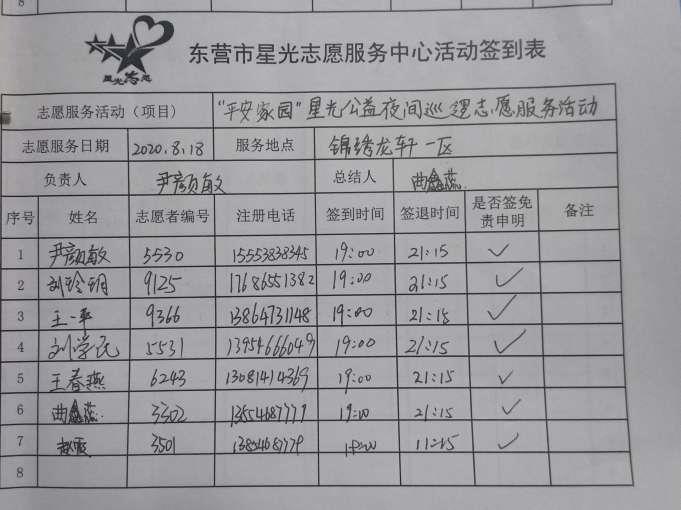 8
星光志愿
东营市星光志愿服务中心活动签到表
志愿服务活动（项目） "平安家园"星光公益夜间巡逻志愿服务活动
志愿服务日期 2020.8.18 服务地点 锦绣龙轩一区
负责人 尹颜敏 总结人 曲鑫蕊
序号 姓名 志愿者编号 注册电话 签到时间 签退时间 是否签免责申明 备注
1 尹颜敏 5530 15553838345 19:00 21:15 ✓
2 刘玲玥 9125 17686551382 19:00 21:15 ✓
3 王一平 9366 13864731148 19:00 21:15 ✓
4 刘学民 5531 13954666049 19:00 21:15 ✓
5 王春燕 6243 13081414369 19:00 21:15 ✓
6 曲鑫蕊 3302 19:00 21:15 ✓
7 3501 11:15 ✓
8